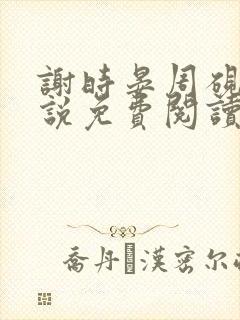 謝時晏周硯
說免費閱讀
喬丹·漢密尔